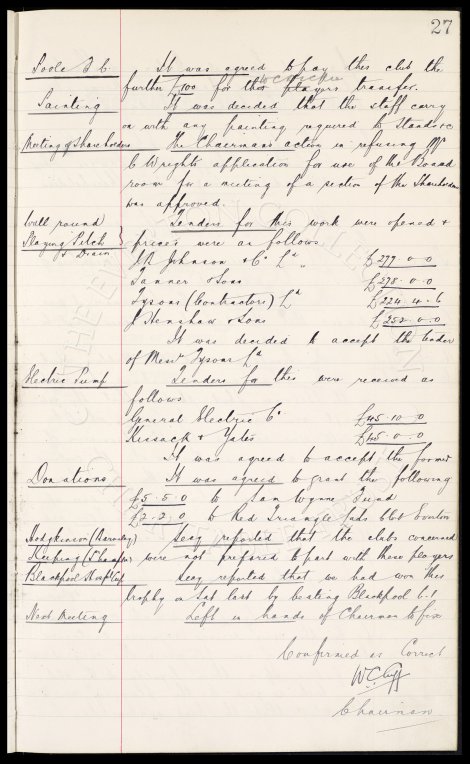 27
Poole F.C. It was agreed to pay this club the
further £100 for this players transfer.
McCrickie
Painting It was decided that the staff carry
on with any painting required to Stands &c
Meeting of Shareholders The Chairman's action in refusing Mr
C Wrights application for use of the Board
room for a meeting of a section of the Shareholders
was approved.
Wall round Tenders for this work were opened &
Playing Pitch & Drain } prices were as follows
J.R. Johnson & Co Ld " £277.0.0
Tanner & Sons £278.0.0
Tysons (Contractors) Ld £224.4.6
J Henshaw & Sons £252.0.0
It was decided to accept the tender
of Messrs Tysons Ld
Electric Pump Tenders for this were received as
follows
General Electric Co £45.10.0
Kusack & Yates £45.0.0
It was agreed to accept the former
Donations It was agreed to grant the following
£5.5.0 to Sam Wynne Fund
£2.2.0 to Red Triangle Lads Club Everton
Hodgkinson (Barnsley) Secy reported that the clubs concerned
Keeping (S'hampton) were not prepared to part with these players
Blackpool Hosp Cup Secy reported that we had won this
trophy on Sat last by beating Blackpool 2.1
Next Meeting Left in hands of Chairman to fix
Confirmed as Correct
W.C. Cuff
Chairman